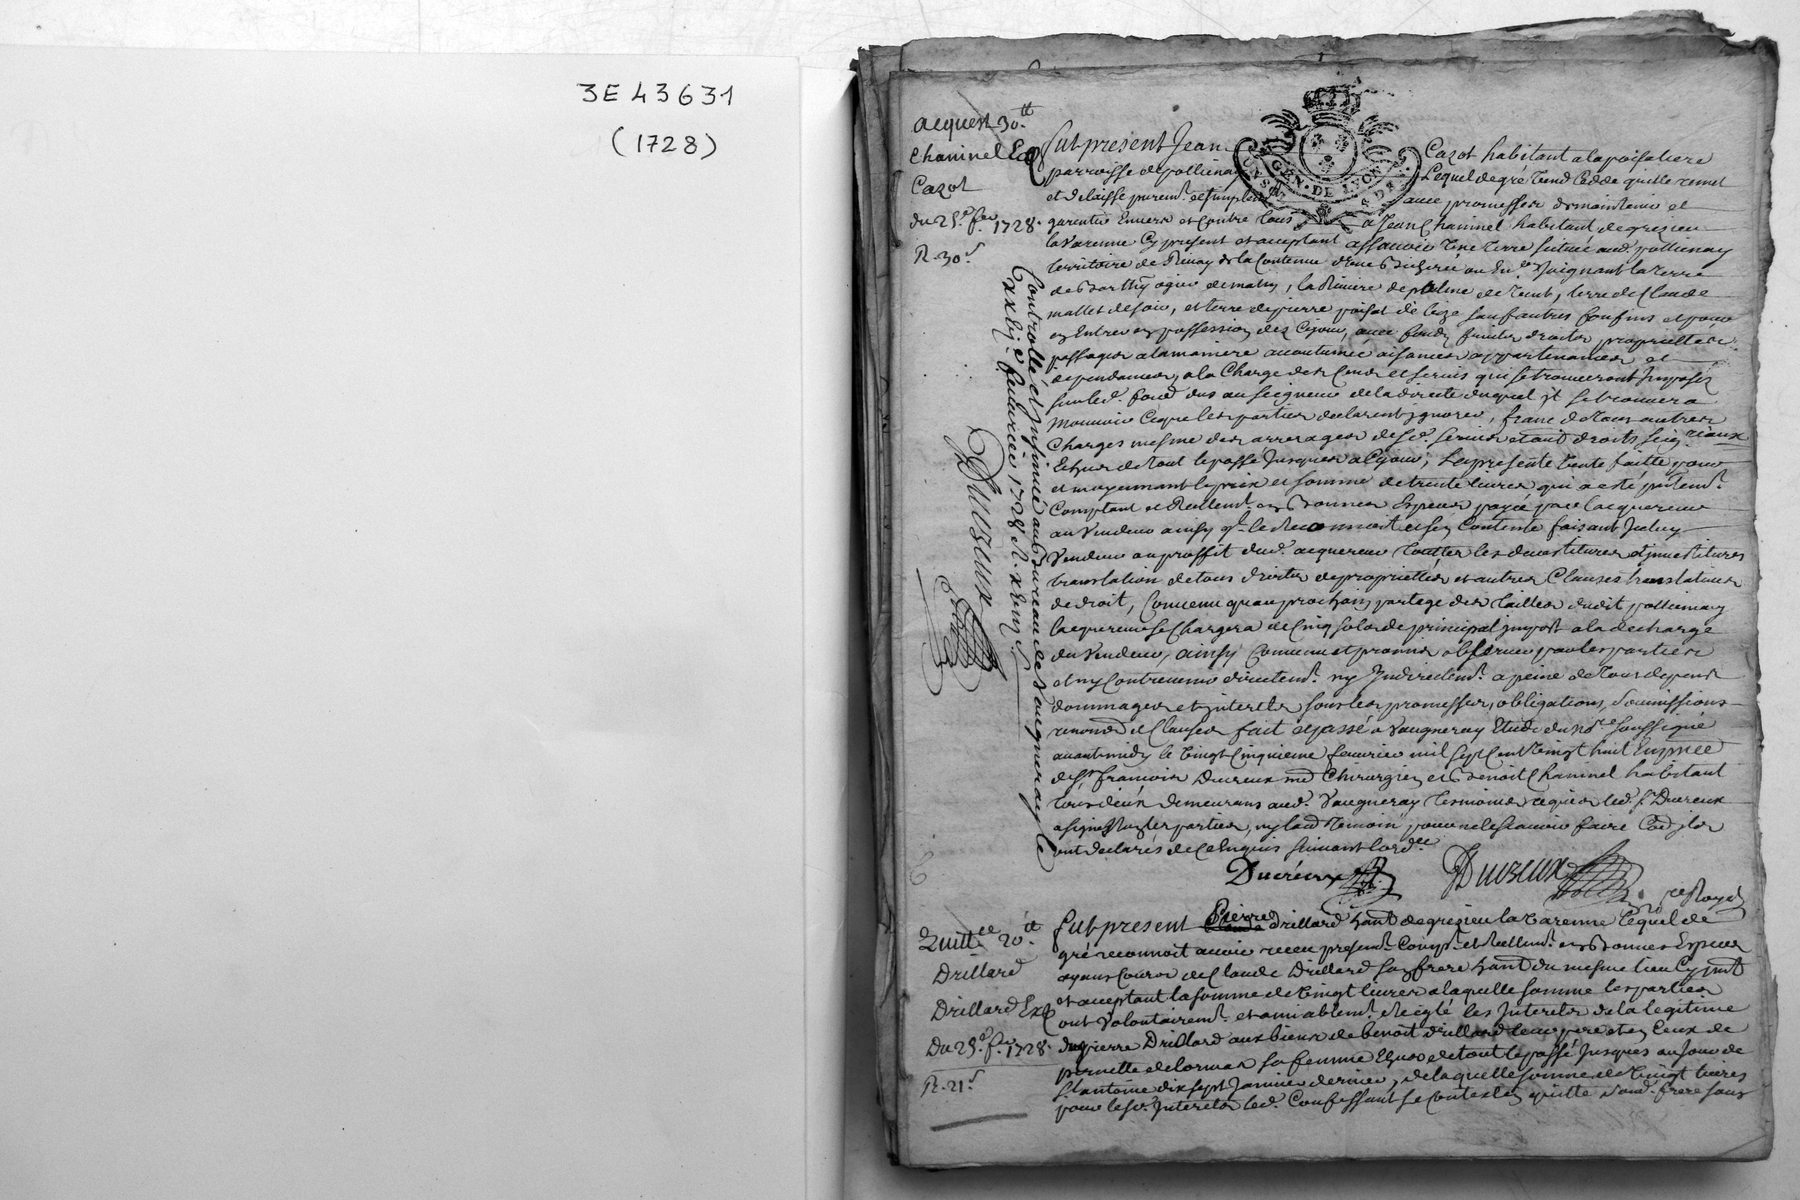 3E 43631
(1728)
acquest 30.tt
Chaninel Exp
Cazot
du 25.e fev. 1728.
R. 30.s
GEN. DE LYON
Fut present Jean Cazot habitant a la poisatiere
parroisse de pollienay Lequel de gré vend cedde quitte remet
et delaisse purem.t et simplem.t avec promesse de maintenir et
garentir envers et contre tous a Jean Chaninel habitant de grezieu
la Varenne cy present et acceptant assavoir une terre scituée aud. pollienay
territoire de de la contenue d'une bicherée ou en.on joignant la terre
de Barthy ogier de matin, la Riviere de de vent, terre de Claude
mallet de soir, et terre de pierre de bize sauf autres confins et pour
en entrer en possession dez cejour, avec fondz fruits droits proprietter
passages a la maniere accoutumée aisances appartenances et
dependances, a la Charge des Cens et servis qui se trouveront Imposés
sur led. fond dus au seigneur de la directe duquel jl se trouvera
mouvoir ce que les parties declarent jgnorer, franc de tous autres
Charges mesme des arrerages de sd. servis et aut droits seig.riaux
Echus de tout le passé jusques a cejour, La presente vente faitte pour
et moyennant le prix et somme de trente livres qui a esté presentem.t
Comptant et Reellem.t en bonnes Especes payée par l'acquereur
au Vendeur ainsy qu'il le Reconnoit et s'en contente faisant jceluy
Vendeur au proffit dud. acquereur touttes les devestitures et jnvestitures
translation de tous droits de proprietter et autres Clauses translatives
de droit, Convenu qu'au prochain partage des tailles dudit pollienay
lacquereur se Chargera de cinq sols de principal jmpost a la decharge
du Vendeur, ainsy Convenu et promis observer par les parties
et ny contrevenir directem.t ny Indirectem.t a peine de tous depens
dommages et interets sous les promesses, obligations, soumissions
renonc.ons et Clauses fait et passé a Vaugneray Etude du no.re soussigné
avant midy le vingt cinquieme fevrier mil sept cent vingt huit En presence
de s.r francois Ducreux m.e Chirurgien et Benoit Chaninel habitant
tous deux demeurans aud. Vaugneray temoins requis led. s.r Ducreux
a signé non les parties, ny lautre temoin pour ne le scavoir faire
ont declarés de ce enquis suivant l'ord.ce
Ducreux
Ducreux
no.re Royal
Controllé et jnsinué au Bureau de Vaugneray le
fevrier 1728 R.
Ducreux
Quitt.ce 20.tt
Drillard
Drillard Exp
Du 25.e fev. 1728.
R. 21.s
Fut present Pierre Drillard hant de grezieu la Varenne Lequel de
gré reconnoit avoir receu presentem.t compt. et reellem.t en bonnes Especes
ayans cours de Claude Drillard son frere hant du mesme lieu cy pnt
et acceptant la somme de vingt livres a laquelle somme les parties
ont volontairem.t et amiablem.t Reiglé les Interets de la legitime
dud. pierre Drillard aux biens de benoit drillard leur pere et en ceux de
pernette delorme sa femme Echus de tout le passé jusques au jour de
S.t antoine dix sept Janvier dernier, de laquelle somme de vingt livres
pour lesd. Interets led. Confessant se contente en quitte sond. frere sans